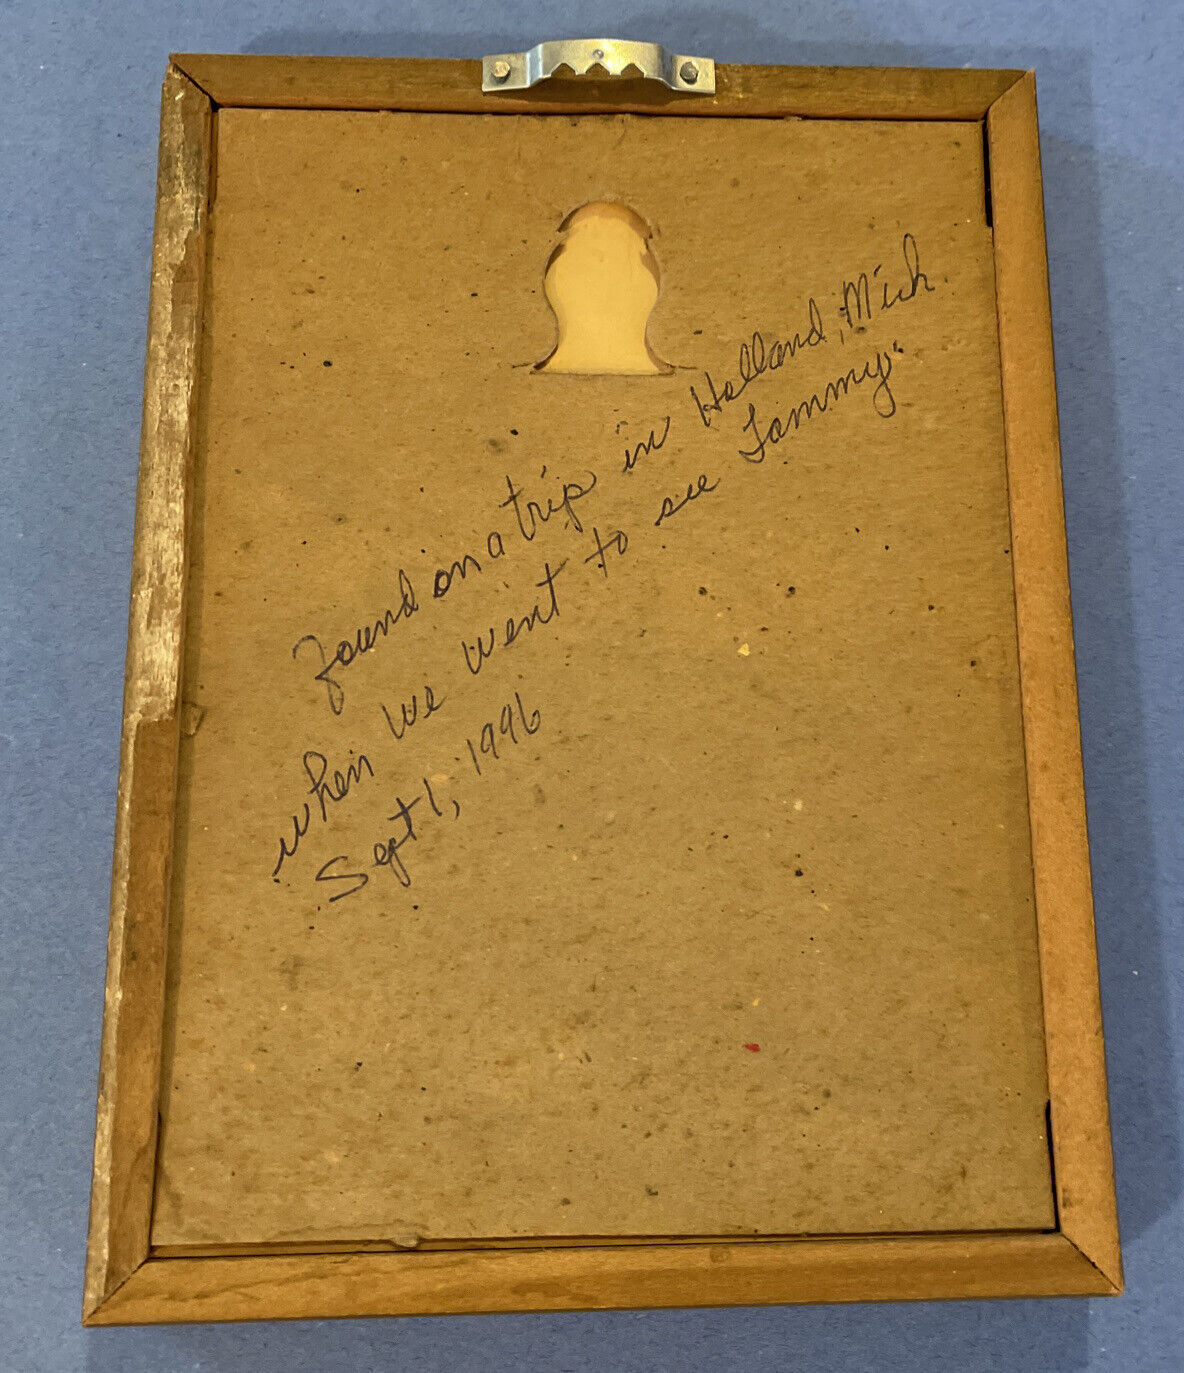 found on a trip in Holland, Mich.
when we went to see Tammy.
Sept 1, 1996